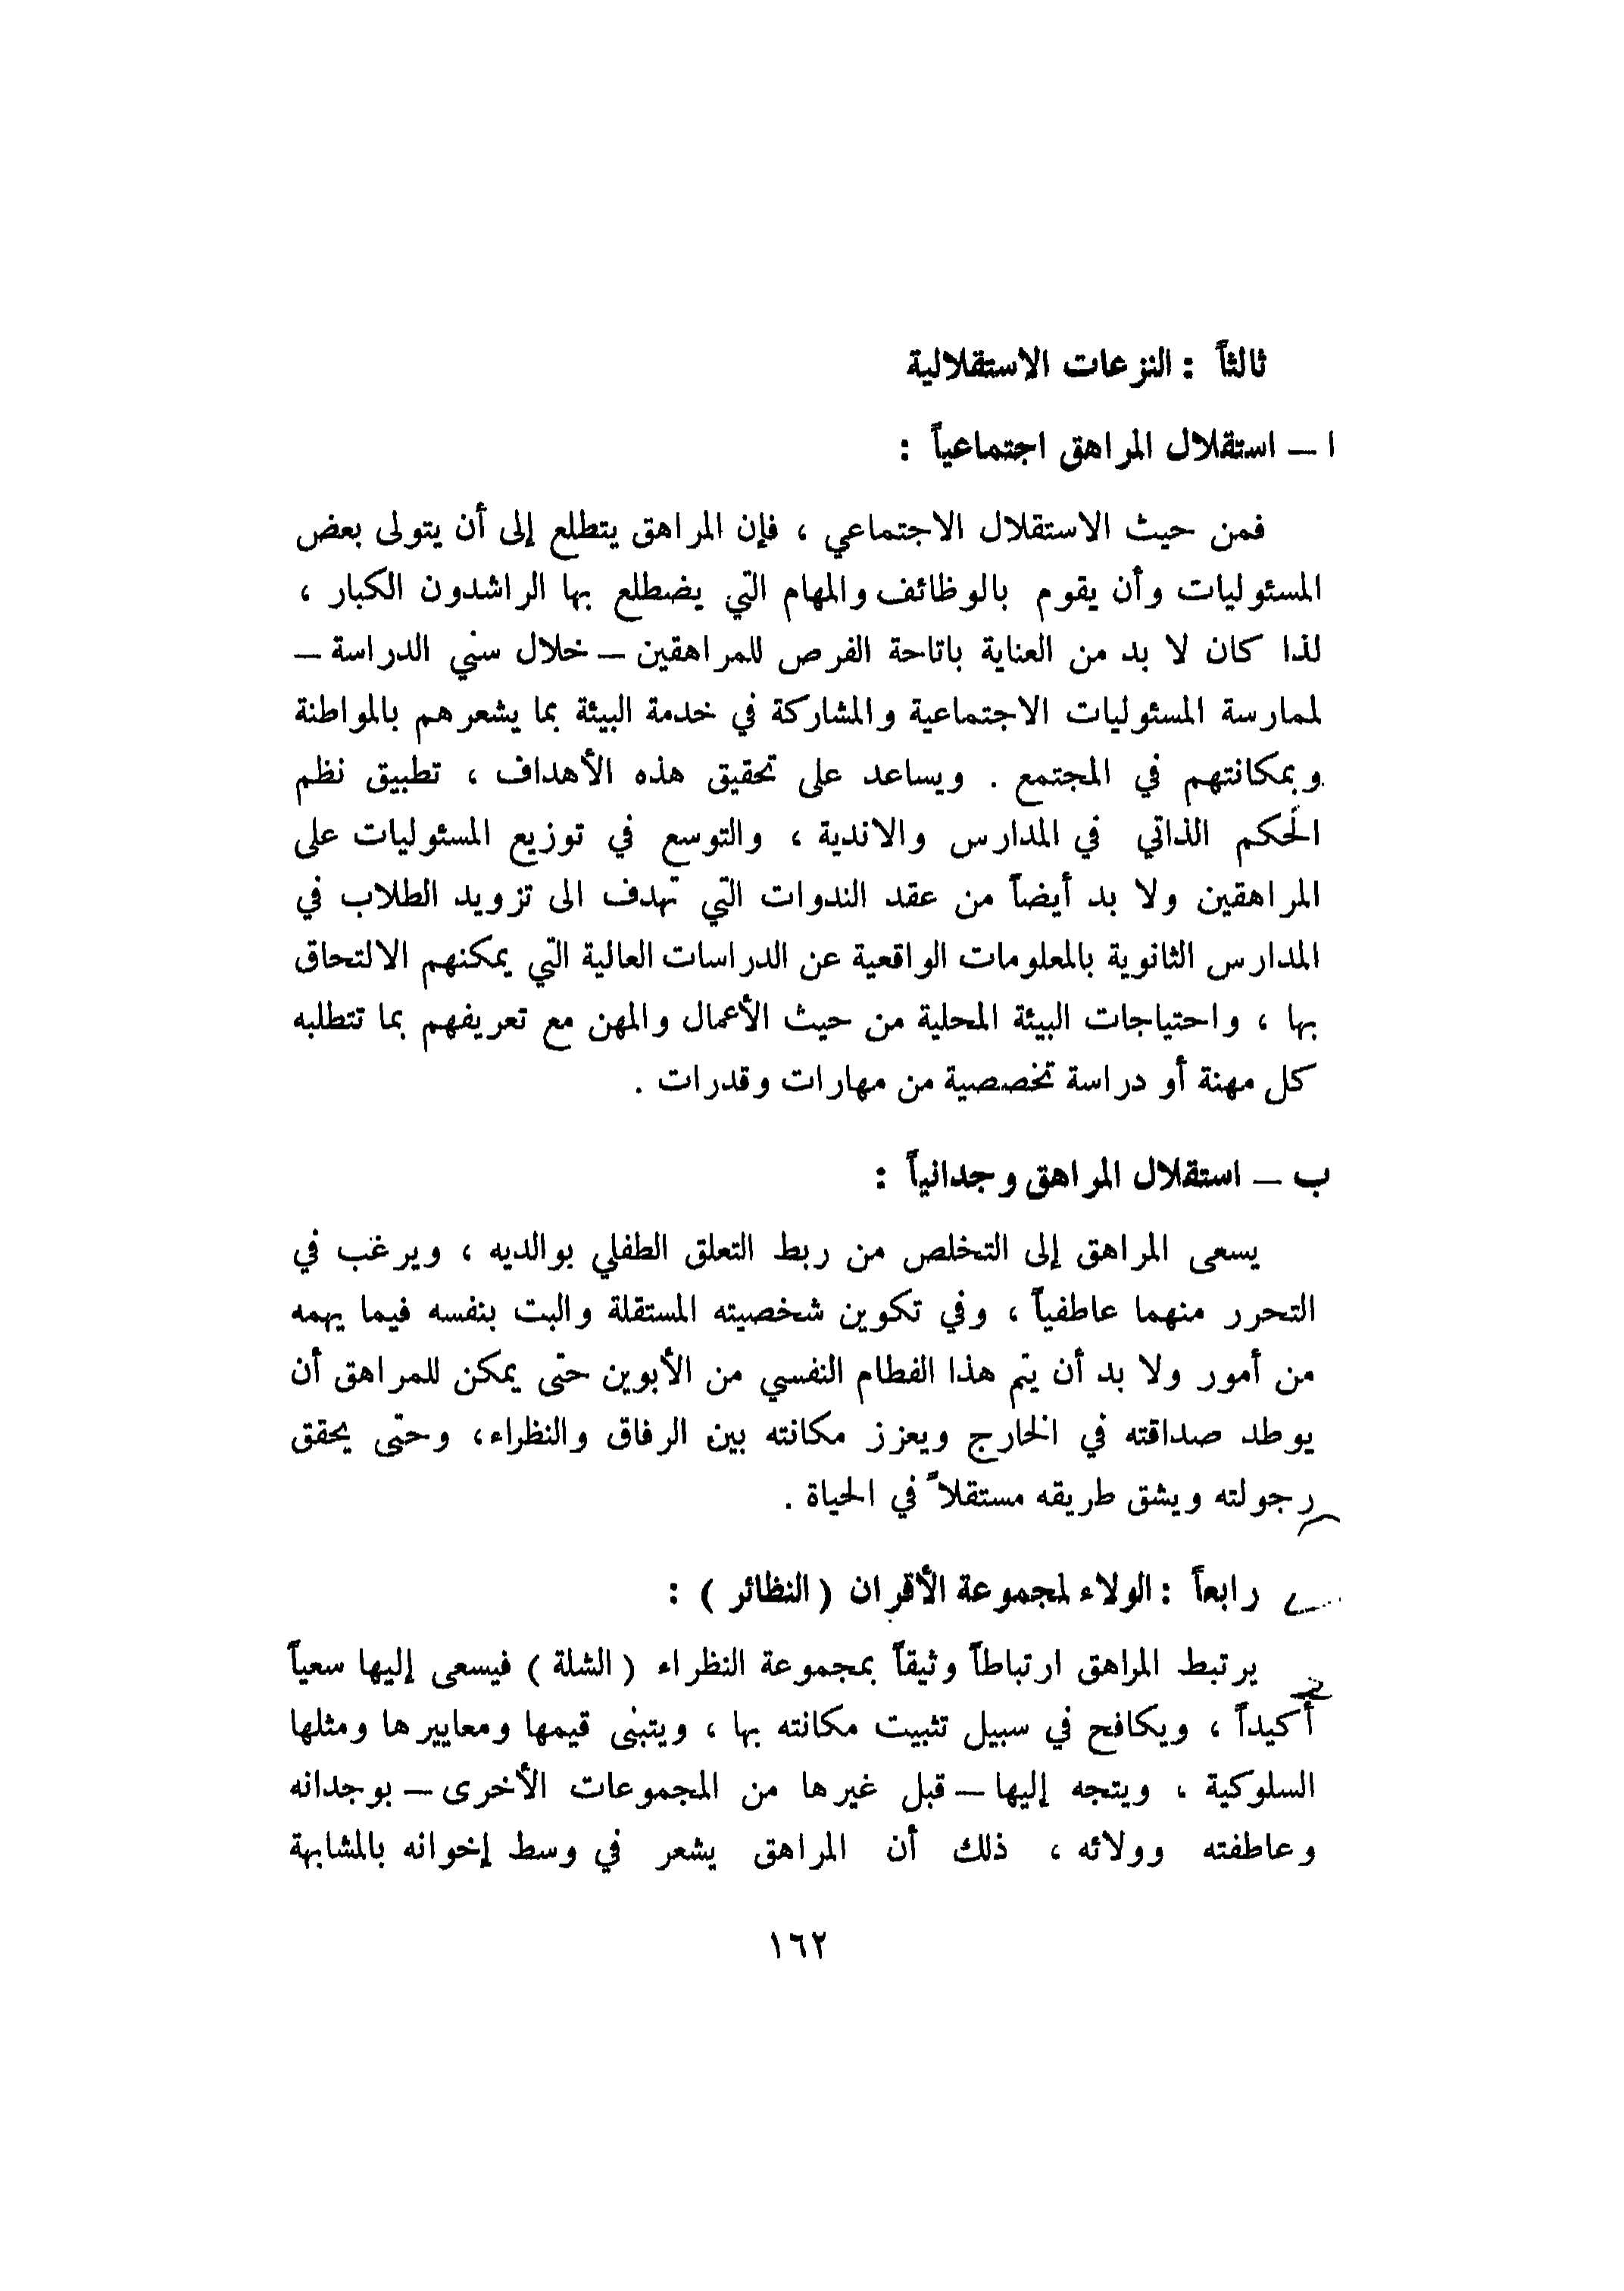 ثالثاً : النزعات الاستقلالية
ا – استقلال المراهق اجتماعياً :
فمن حيث الاستقلال الاجتماعي ، فإن المراهق يتطلع إلى أن يتولى بعض
المسئوليات وأن يقوم بالوظائف والمهام التي يضطلع بها الراشدون الكبار ،
لذا كان لا بد من العناية باتاحة الفرص للمراهقين – خلال سني الدراسة –
لممارسة المسئوليات الاجتماعية والمشاركة في خدمة البيئة بما يشعرهم بالمواطنة
وبمكانتهم في المجتمع . ويساعد على تحقيق هذه الأهداف ، تطبيق نظم
الحكم الذاتي في المدارس والاندية ، والتوسع في توزيع المسئوليات على
المراهقين ولا بد أيضاً من عقد الندوات التي تهدف الى تزويد الطلاب في
المدارس الثانوية بالمعلومات الواقعية عن الدراسات العالية التي يمكنهم الالتحاق
بها ، واحتياجات البيئة المحلية من حيث الأعمال والمهن مع تعريفهم بما تتطلبه
كل مهنة أو دراسة تخصصية من مهارات وقدرات .
ب – استقلال المراهق وجدانياً :
يسعى المراهق إلى التخلص من ربط التعلق الطفلي بوالديه ، ويرغب في
التحرر منهما عاطفياً ، وفي تكوين شخصيته المستقلة والبت بنفسه فيما يهمه
من أمور ولا بد أن يتم هذا الفطام النفسي من الأبوين حتى يمكن للمراهق أن
يوطد صداقته في الخارج ويعزز مكانته بين الرفاق والنظراء، وحتى يحقق
رجولته ويشق طريقه مستقلاً في الحياة .
رابعاً : الولاء لمجموعة الأقران ( النظائر ) :
يرتبط المراهق ارتباطاً وثيقاً بمجموعة النظراء ( الشلة ) فيسعى إليها سعياً
أكيداً ، ويكافح في سبيل تثبيت مكانته بها ، ويتبنى قيمها ومعاييرها ومثلها
السلوكية ، ويتجه إليها – قبل غيرها من المجموعات الأخرى – بوجدانه
وعاطفته وولائه ، ذلك أن المراهق يشعر في وسط إخوانه بالمشابهة
١٦٢